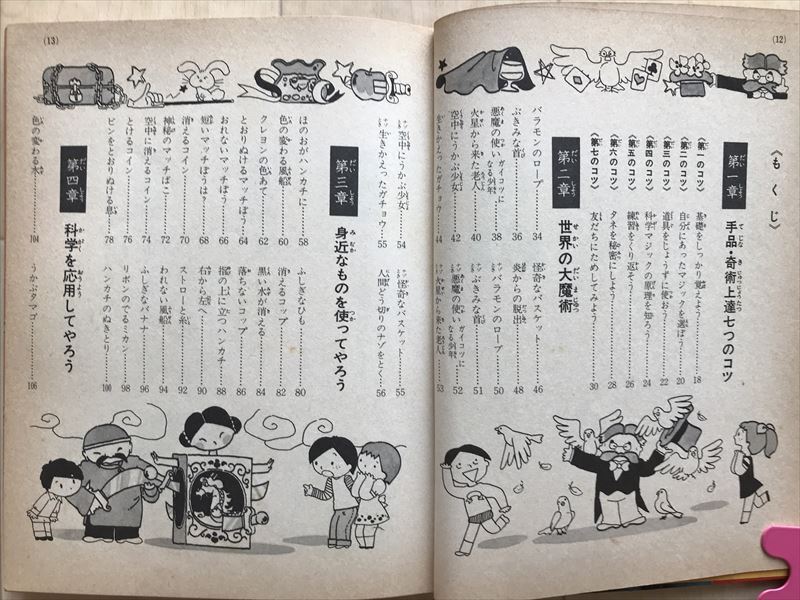 (12)
〈もくじ〉
第一章 手品・奇術上達七つのコツ
〈第一のコツ〉 基礎をしっかり覚えよう 18
〈第二のコツ〉 自分にあったマジックを選ぼう 20
〈第三のコツ〉 道具をじょうずに使おう 22
〈第四のコツ〉 科学マジックの原理を知ろう 24
〈第五のコツ〉 練習をくり返そう 26
〈第六のコツ〉 タネを秘密にしよう 28
〈第七のコツ〉 友だちにためしてみよう 30
第二章 世界の大魔術
バラモンのロープ 34
ぶきみな首 36
悪魔の使い ガイコツになる少年 38
火星から来た老人 40
空中にうかぶ少女 42
生きかえったガチョウ 44
怪奇なバスケット 46
炎からの脱出 48
バラモンのロープ 50
ぶきみな首 51
悪魔の使い ガイコツになる少年 52
火星から来た老人 53
(13)
空中にうかぶ少女 54
生きかえったガチョウ 55
怪奇なバスケット 55
人間どう切りのナゾをとく 56
第三章 身近なものを使ってやろう
ほのおがハンカチに 58
クレヨンの色あて 60
色の変わる風船 62
とおりぬけるマッチぼう 64
おれないマッチぼう 66
短いマッチぼうは? 68
神秘のマッチばこ 70
消えるコイン 72
空中に消えるコイン 74
とけるコイン 76
ビンをとおりぬける息 78
ふしぎなひも 80
消えるコップ 82
黒い水が消える 84
落ちないコップ 86
指の上に立つハンカチ 88
右から左へ 90
ストローと糸 92
われない風船 94
ふしぎなバナナ 96
リボンのでるミカン 98
ハンカチのぬきとり 100
第四章 科学を応用してやろう
色の変わる水 104
うかぶタマゴ 106